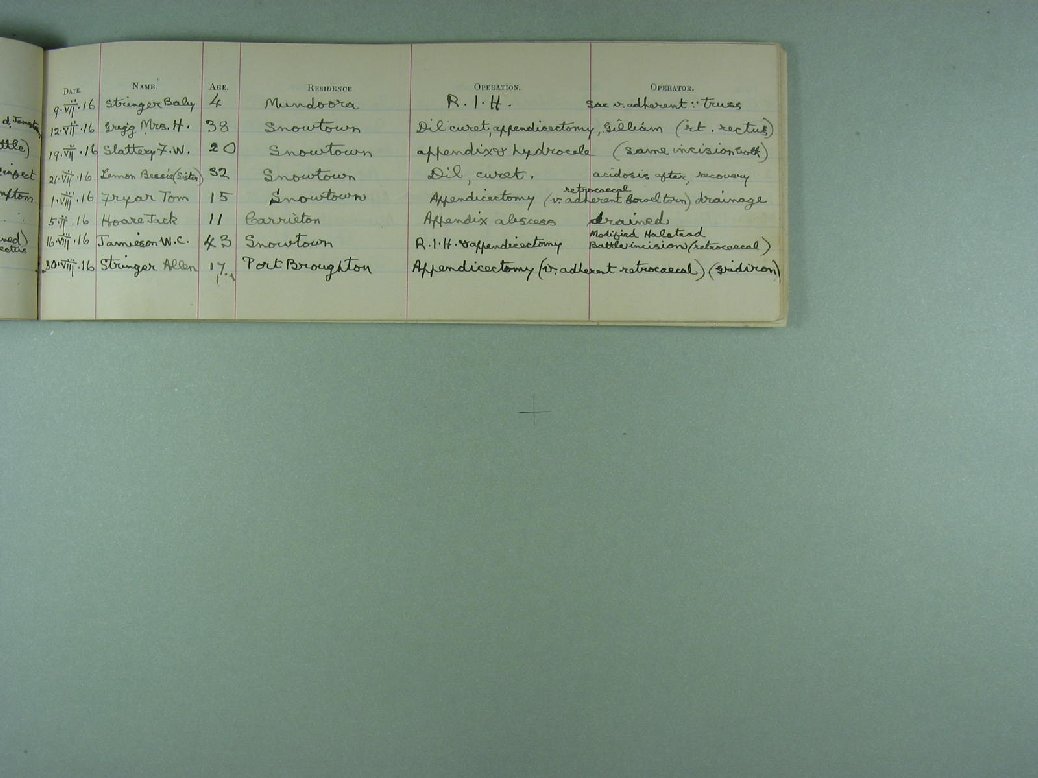 DATE NAME AGE. RESIDENCE OPERATION. OPERATOR.
9.VII.16 Stringer Baby 4 Mundoora R.I.H. Sac v. adherent ∵ truss
12.VII.16 Gregg Mrs. H. 38 Snowtown Dil. curet, appendicectomy, Gilliam (rt. rectus)
19.VII.16 Slattery F.W. 20 Snowtown appendix & hydrocele (same incision both)
21.VII.16 Lemon Bessie (Sister) 32 Snowtown Dil, curet. acidosis after, recovery
retrocaecal
1.VII.16 Fryar Tom 15 Snowtown Appendicectomy (v. adherent Bowel torn) drainage
5.16 Hoare Jack 11 Carrieton Appendix abscess drained
Modified Halstead
16.VII.16 Jamieson W.C. 43 Snowtown R.I.H. & appendicectomy Battle incision (retrocaecal)
30.VII.16 Stringer Allen 17 Port Broughton Appendicectomy (v. adherent retrocaecal) (gridiron)